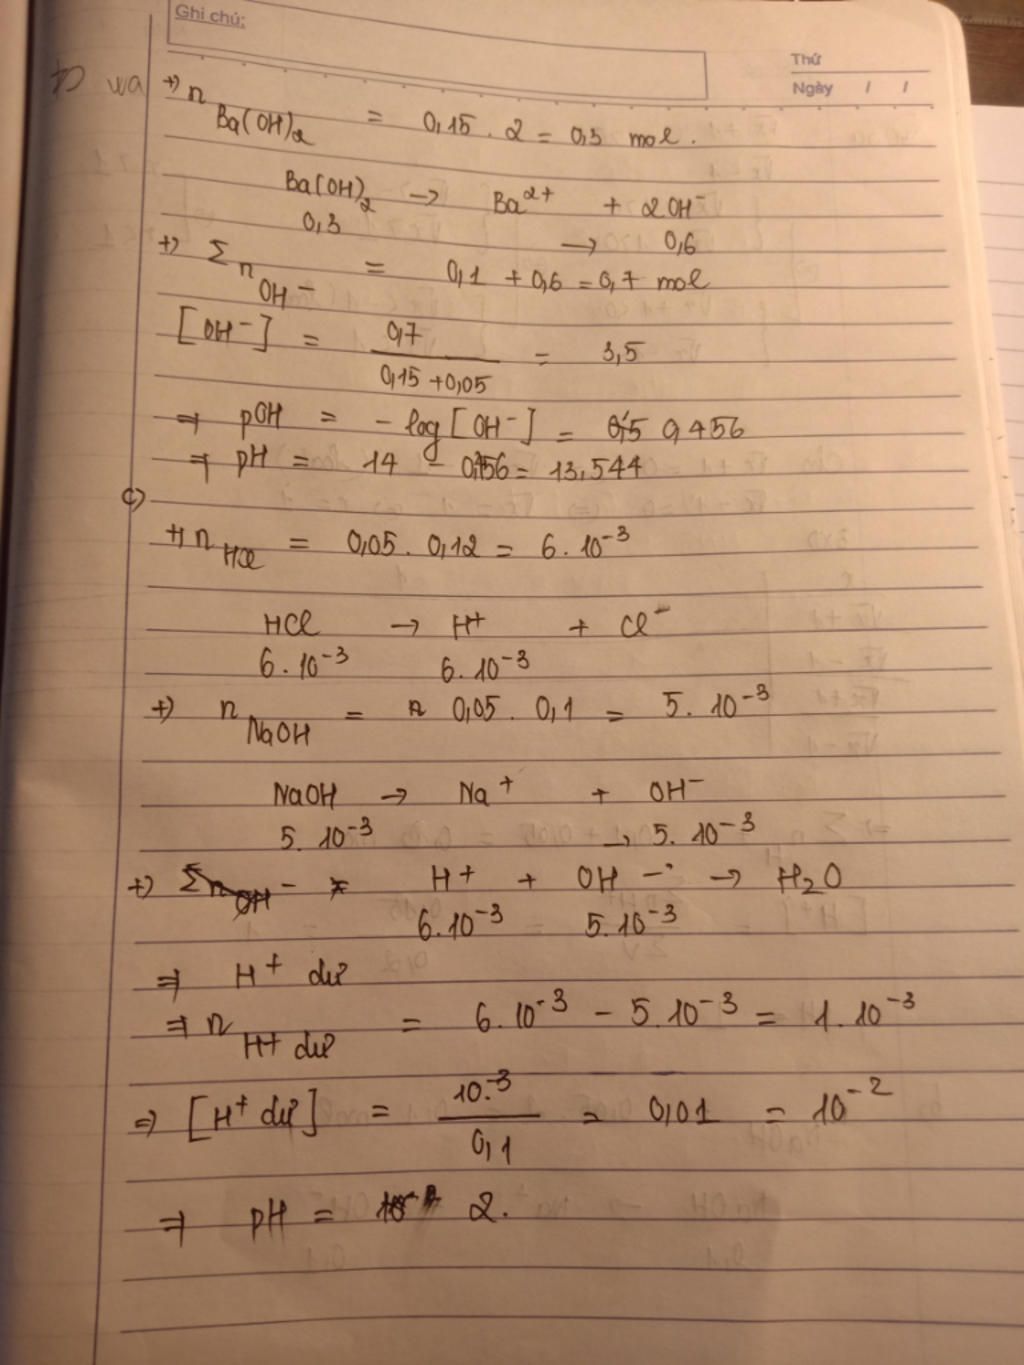 Ghi chú:
Thứ
Ngày / /
b)
+) n Ba(OH)₂ = 0,15 . 2 = 0,3 mol.
Ba(OH)₂ → Ba²⁺ + 2OH⁻
0,3 → 0,6
+) Σ n OH⁻ = 0,1 + 0,6 = 0,7 mol
[OH⁻] = 0,7 / 0,15 + 0,05 = 3,5
⇒ pOH = - log [OH⁻] =
⇒ pH = 14 - = 13,544
c)
+) n HCl = 0,05 . 0,12 = 6 . 10⁻³
HCl → H⁺ + Cl⁻
6 . 10⁻³ 6 . 10⁻³
+) n NaOH = 0,05 . 0,1 = 5 . 10⁻³
NaOH → Na⁺ + OH⁻
5 . 10⁻³ → 5 . 10⁻³
+) H⁺ + OH⁻ → H₂O
6 . 10⁻³ 5 . 10⁻³
⇒ H⁺ dư
⇒ n H⁺ dư = 6 . 10⁻³ - 5 . 10⁻³ = 1 . 10⁻³
⇒ [H⁺ dư] = 10⁻³ / 0,1 = 0,01 = 10⁻²
⇒ pH = 2.